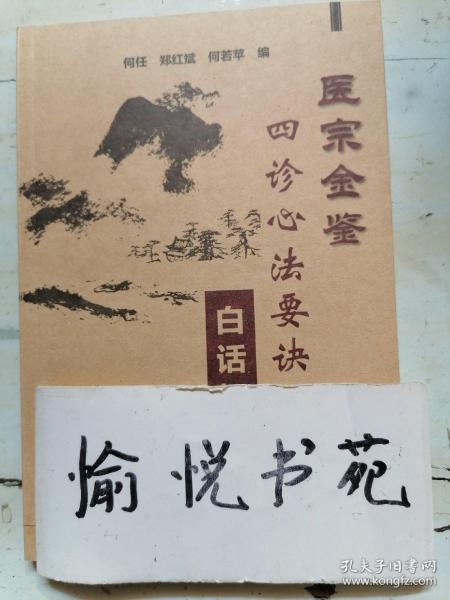 何任 郑红斌 何若苹 编
医宗金鉴
四诊心法要诀
白话
愉悦书苑
孔夫子旧书网
www.kongfz.com